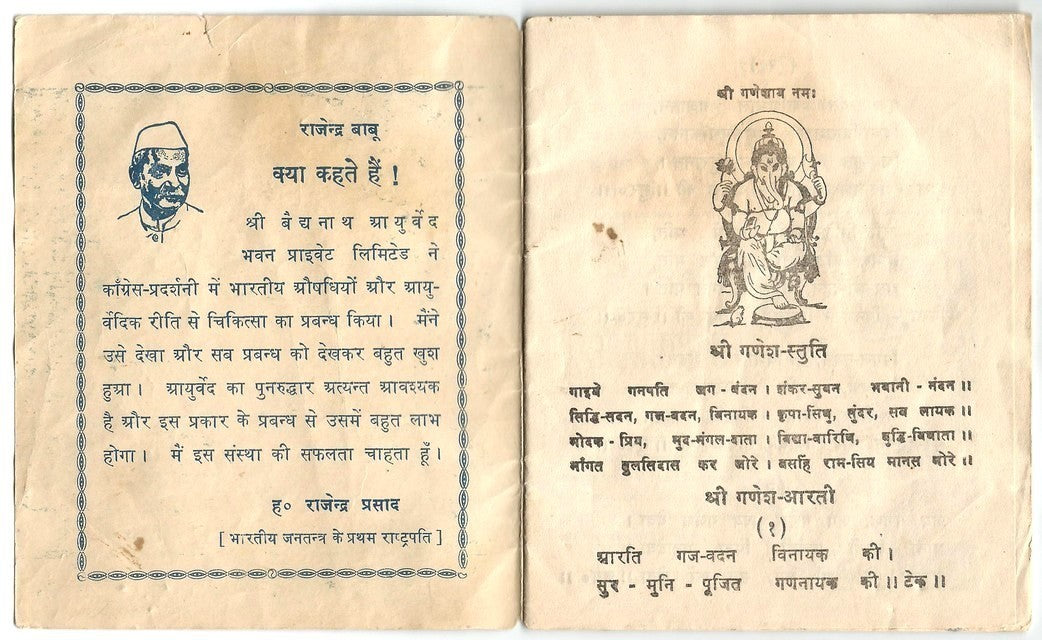 राजेन्द्र बाबू
क्या कहते हैं !
श्री बैद्यनाथ आयुर्वेद
भवन प्राइवेट लिमिटेड ने
काँग्रेस-प्रदर्शनी में भारतीय औषधियों और आयु-
र्वेदिक रीति से चिकित्सा का प्रबन्ध किया। मैंने
उसे देखा और सब प्रबन्ध को देखकर बहुत खुश
हुआ। आयुर्वेद का पुनरुद्धार अत्यन्त आवश्यक
है और इस प्रकार के प्रबन्ध से उसमें बहुत लाभ
होगा। मैं इस संस्था की सफलता चाहता हूँ।
ह० राजेन्द्र प्रसाद
[ भारतीय जनतन्त्र के प्रथम राष्ट्रपति ]
श्री गणेशाय नमः
श्री गणेश-स्तुति
गाइये गनपति जग-वंदन। शंकर-सुवन भवानी-नंदन॥
सिद्धि-सदन, गज-वदन, विनायक। कृपा-सिंधु, सुंदर, सब लायक॥
मोदक-प्रिय, मुद-मंगल-दाता। विद्या-वारिधि, बुद्धि-विधाता॥
माँगत तुलसिदास कर जोरे। बसहिं राम-सिय मानस मोरे॥
श्री गणेश-आरती
(१)
आरति गज-वदन विनायक की।
सुर-मुनि-पूजित गणनायक की॥ टेक॥